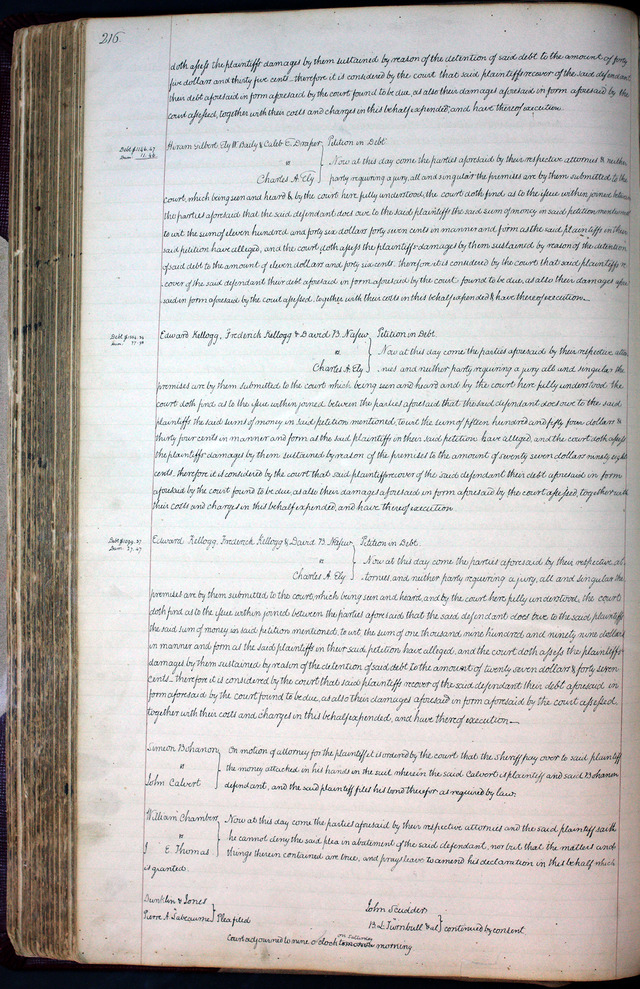 216
doth assess the plaintiffs damages by them sustained by reason of the detention of said debt to the amount of forty
five dollars and thirty five cents therefore it is considered by the court that said plaintiffs recover of the said defendant
their debt aforesaid in form aforesaid by the court found to be due, as also their damages aforesaid in form aforesaid by the
court assessed, together with their costs and charges in this behalf expended, and have thereof execution.
Debt $1146.47
Dam 11.46
Hiram Gilbert, Ely W. Baily & Caleb E. Draper Petition in Debt
vs Now at this day come the parties aforesaid by their respective attornies & neither
Charles A. Ely party requiring a jury, all and singular the premises are by them submitted to the
court, which being seen and heard & by the court here fully understood, the court doth find as to the issue within joined between
the parties aforesaid that the said defendant does owe to the said plaintiffs the said sum of money in said petition mentioned
to wit the sum of eleven hundred and forty six dollars forty seven cents in manner and form as the said plaintiffs in their
said petition have alleged, and the court doth assess the plaintiffs damages by them sustained by reason of the detention
of said debt to the amount of eleven dollars and forty six cents. therefore it is considered by the court that said plaintiffs re
cover of the said defendant their debt aforesaid in form aforesaid by the court found to be due, as also their damages afore
said in form aforesaid by the court assessed, together with their costs in this behalf expended & have thereof execution.
Dam 77.98
Edward Kellogg, Frederick Kellogg & David B. Nafew Petition in Debt.
vs Now at this day come the parties aforesaid by their respective attor
Charles A. Ely nies and neither party requiring a jury all and singular the
premises are by them submitted to the court which being seen and heard and by the court here fully understood the
court doth find as to the issue within joined between the parties aforesaid that the said defendant does owe to the said
plaintiffs the said sums of money in said petition mentioned, to wit the sum of fifteen hundred and fifty four dollars &
thirty four cents in manner and form as the said plaintiffs in their said petition have alleged, and the court doth assess
the plaintiffs damages by them sustained by reason of the premises to the amount of seventy seven dollars ninety eight
cents. therefore it is considered by the court that said plaintiffs recover of the said defendant their debt aforesaid in form
aforesaid by the court found to be due, as also their damages aforesaid in form aforesaid by the court assessed, together with
their costs and charges in this behalf expended, and have thereof execution.
Dam 27.47
Edward Kellogg, Frederick Kellogg & David B. Nafew Petition in Debt.
vs Now at this day come the parties aforesaid by their respective at
Charles A. Ely tornies and neither party requiring a jury, all and singular the
premises are by them submitted to the court, which being seen and heard, and by the court here fully understood, the court
doth find as to the issue within joined between the parties aforesaid that the said defendant does owe to the said plaintiffs
the said sum of money in said petition mentioned, to wit, the sum of one thousand nine hundred and ninety nine dollars
in manner and form as the said plaintiffs in their said petition have alleged, and the court doth assess the plaintiffs
damages by them sustained by reason of the detention of said debt to the amount of twenty seven dollars & forty seven
cents therefore it is considered by the court that said plaintiffs recover of the said defendant their debt aforesaid in
form aforesaid by the court found to be due, as also their damages aforesaid in form aforesaid by the court assessed.
together with their costs and charges in this behalf expended, and have thereof execution.
Simeon Bohanon On motion of attorney for the plaintiff it is ordered by the court that the Sheriff pay over to said plaintiff
vs the money attached in his hands in the suit wherein the said Calvert is plaintiff and said Bohanon
John Calvert defendant, and the said plaintiff files his bond therefor as required by law.
William Chambers Now at this day come the parties aforesaid by their respective attornies and the said plaintiff saith
vs he cannot deny the said plea in abatement of the said defendant, nor but that the matters and
J E. Thomas things therein contained are true, and prays leave to amend his declaration in this behalf which
is granted.
Dunklin & Jones
vs Plea filed
Pierre A. Labeaume
John Scudder
vs continued by consent
B. L. Turnbull & al
Court adjourned to nine o'clock on Saturday morning